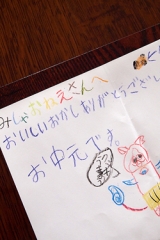 みしゃおねえさんへ
おいしいおかしありがとうござい
お中元です。